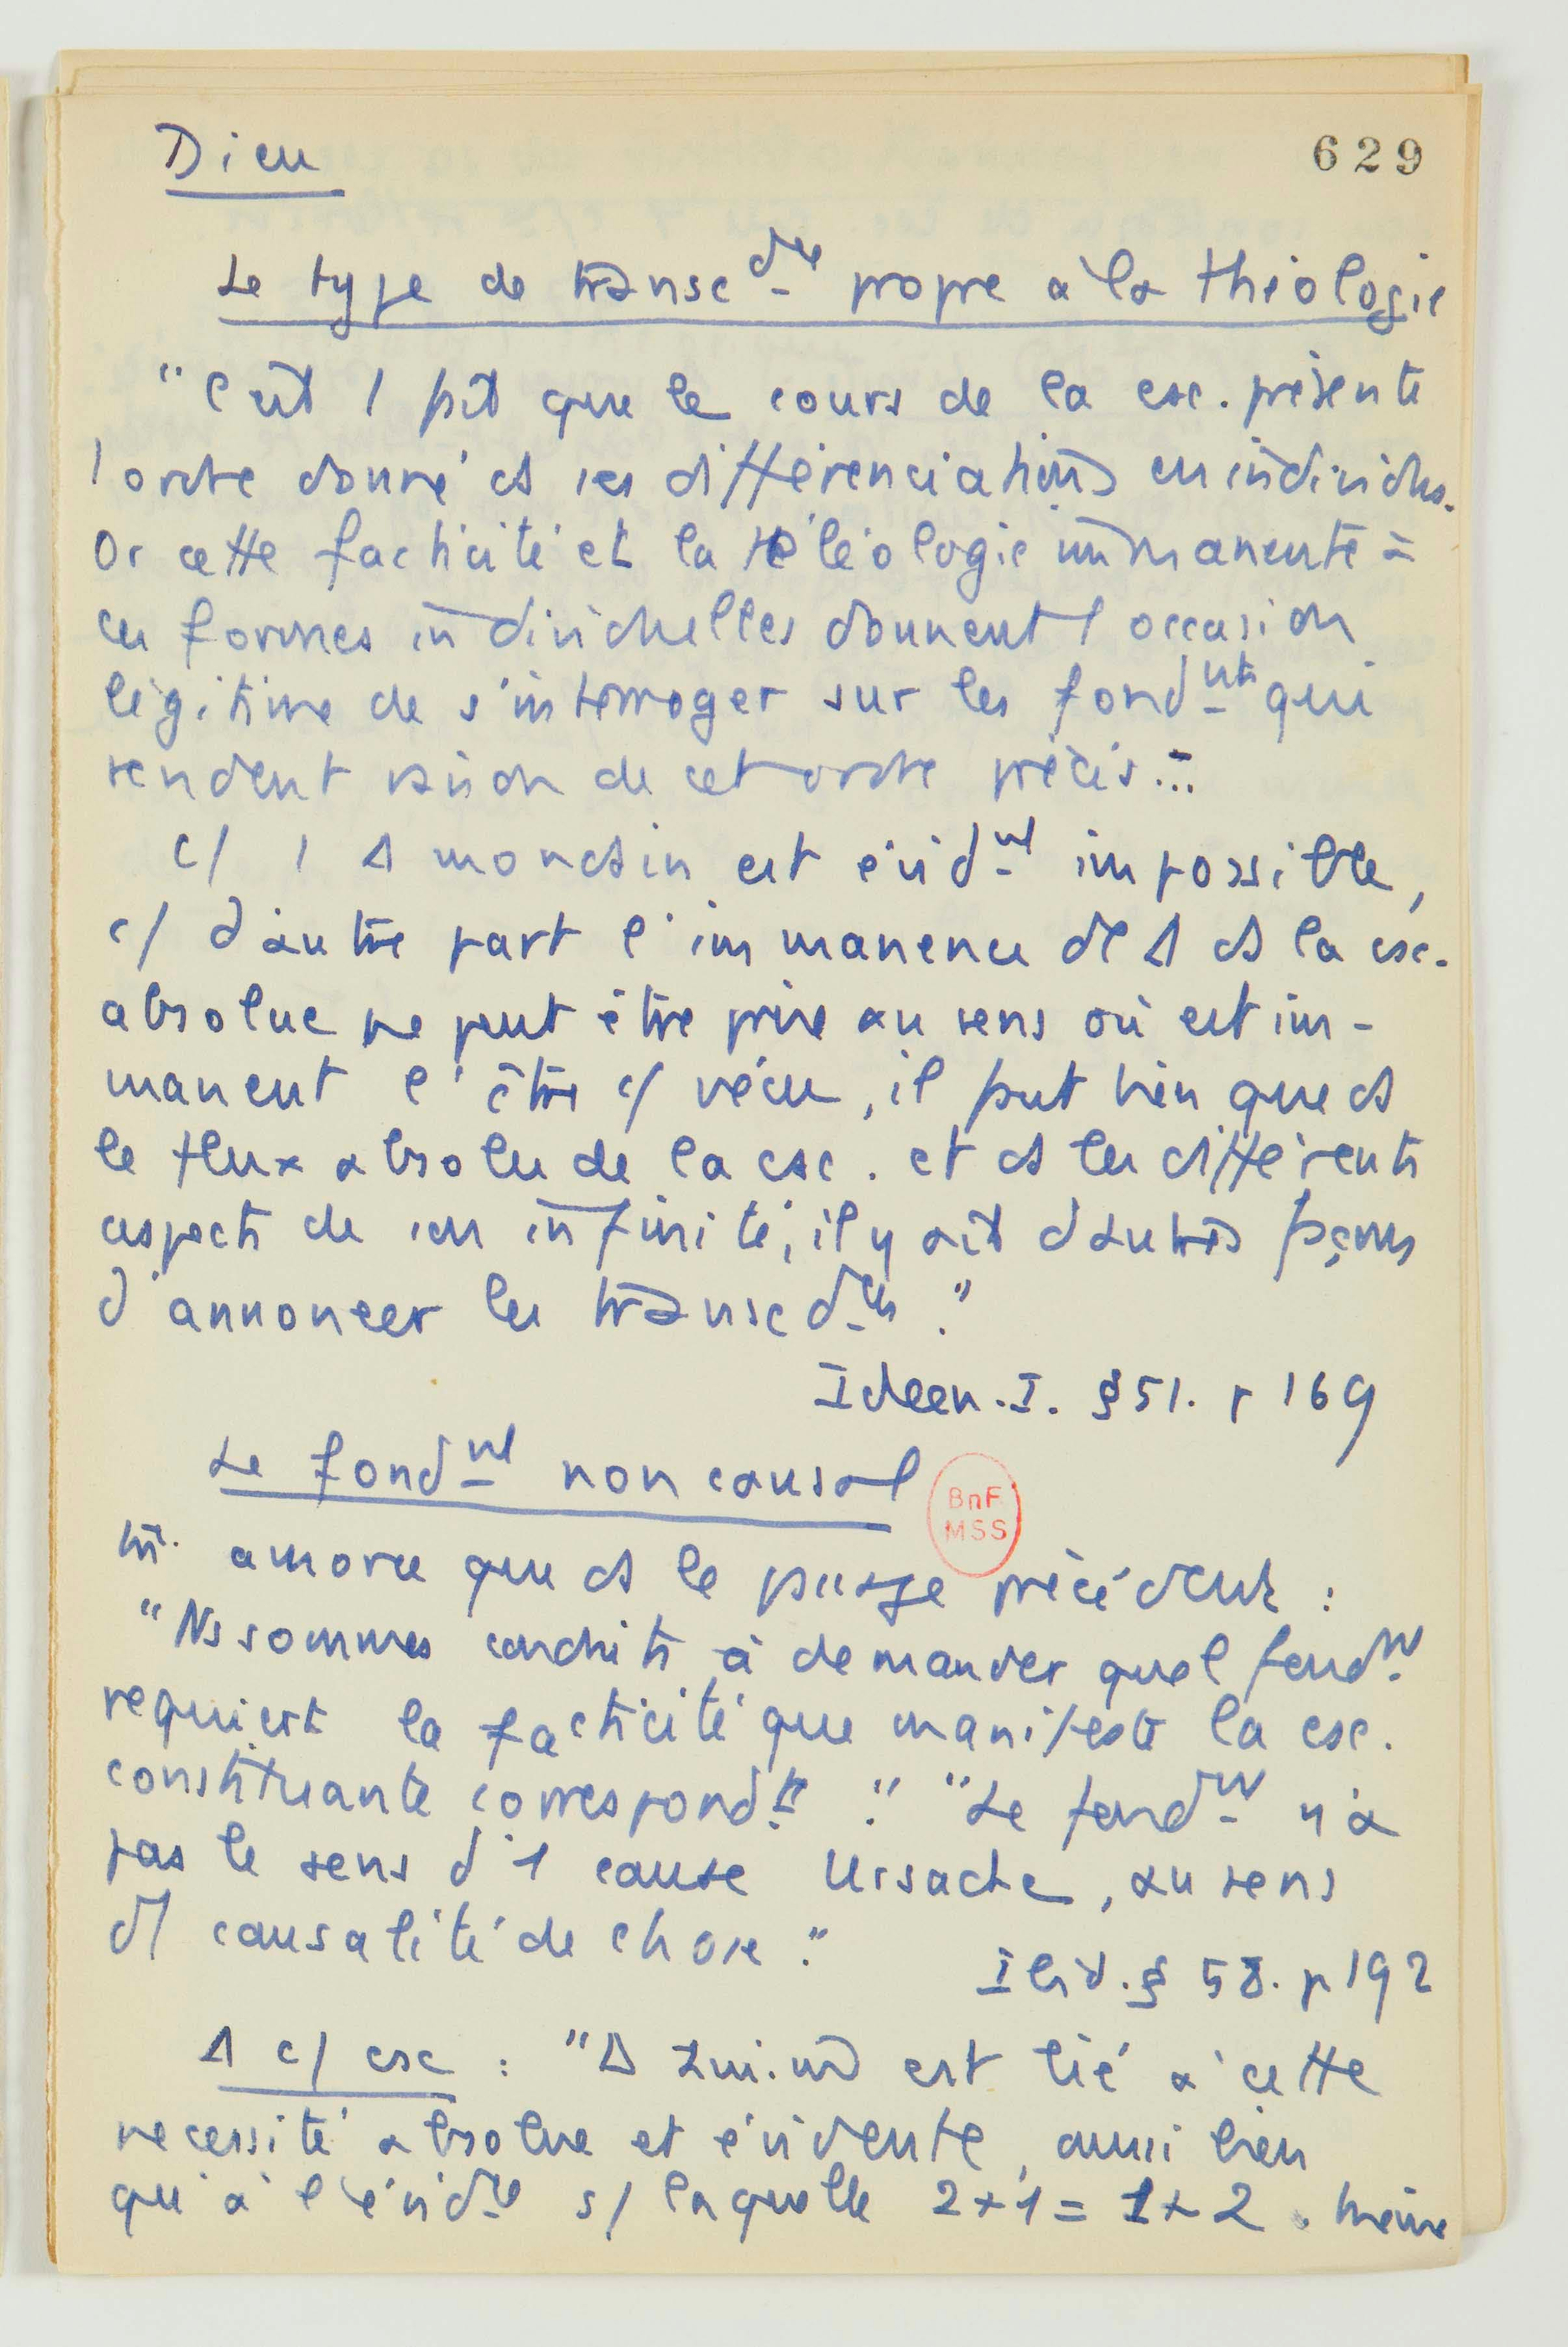 Dieu
629
Le type de transcdce propre à la théologie
"C'est 1 fait que le cours de la csc. présente
1 ordre donné ds ses différenciations en individus.
Or cette facticité et la téléologie immanente à
ces formes individuelles donnent l'occasion
légitime de s'interroger sur les fondnts qui
rendent raison de cet ordre précis...
c/ 1 Δ mondain est évidnt impossible,
c/ d'autre part l'immanence de Δ ds la csc.
absolue ne peut être prise au sens où est im-
manent l'être c/ vécu, il faut bien que ds
le flux absolu de la csc. et ds les différents
aspects de son infinité, il y ait d'autres façons
d'annoncer les transcdces."
Ideen. I. § 51. p 169
Le fondnt non causal
amorce que ds le passage précédent :
"Ns sommes conduits à demander quel fondnt
requiert la facticité que manifeste la csc.
constituante correspondte." "Le fondnt n'a
pas le sens d'1 cause Ursache, au sens
d'1 causalité de chose."
Ibid. § 58. p 192
Δ c/ csc : "Δ lui-m est lié à cette
nécessité absolue et évidente, aussi bien
qu'à l'évidce s/ laquelle 2+1 = 1+2. Même
BnF
MSS